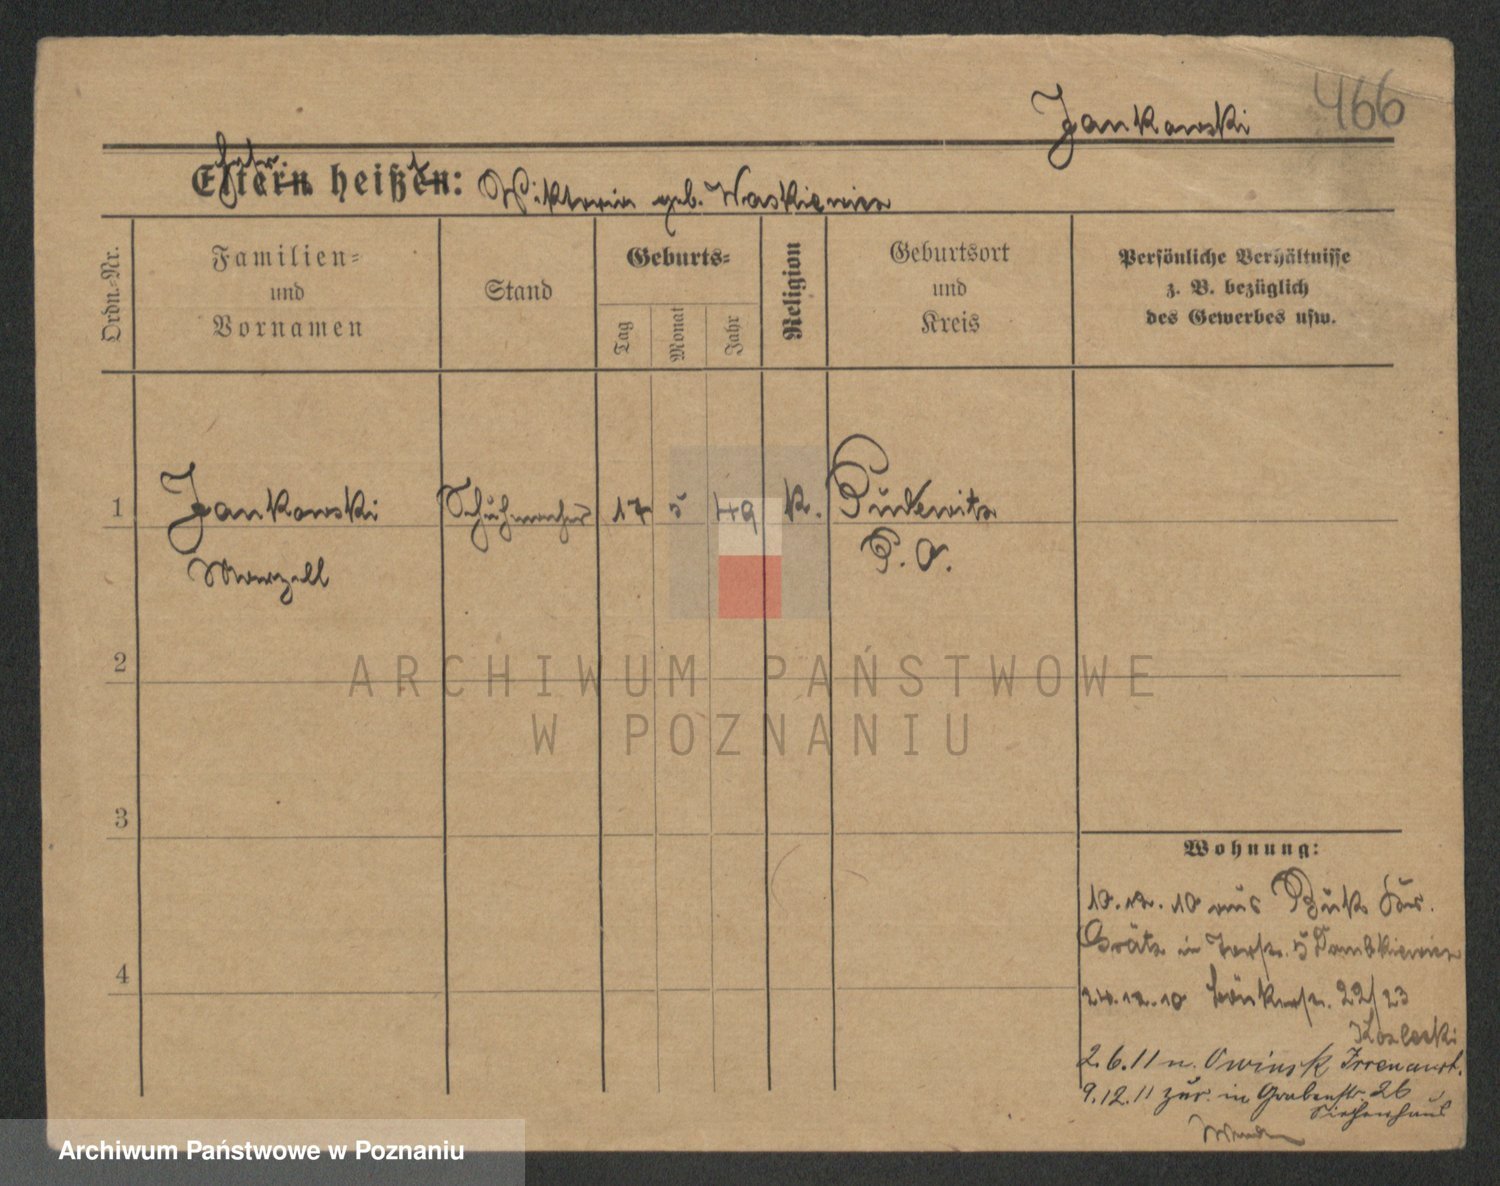 466
Jankowski
Eltern heißen: Wiktoria geb. Waskiewicz
Ordn.-Nr.
Familien-
und
Vornamen
Stand
Geburts-
Tag
Monat
Jahr
Religion
Geburtsort
und
Kreis
Persönliche Verhältnisse
z. B. bezüglich
des Gewerbes usw.
1 Jankowski Schuhmacher 17 5 49 k. Pudewitz
Marzell P. O.
2
ARCHIWUM PAŃSTWOWE
W POZNANIU
3
Wohnung:
10.12.10 aus Buk Kr.
Grätz in 5
4
24.12.10 22/23
Kozlecki
2.6.11 n. Owinsk Irrenanst.
9.12.11 zur. in Grabenstr. 26
Siechenhaus
Archiwum Państwowe w Poznaniu